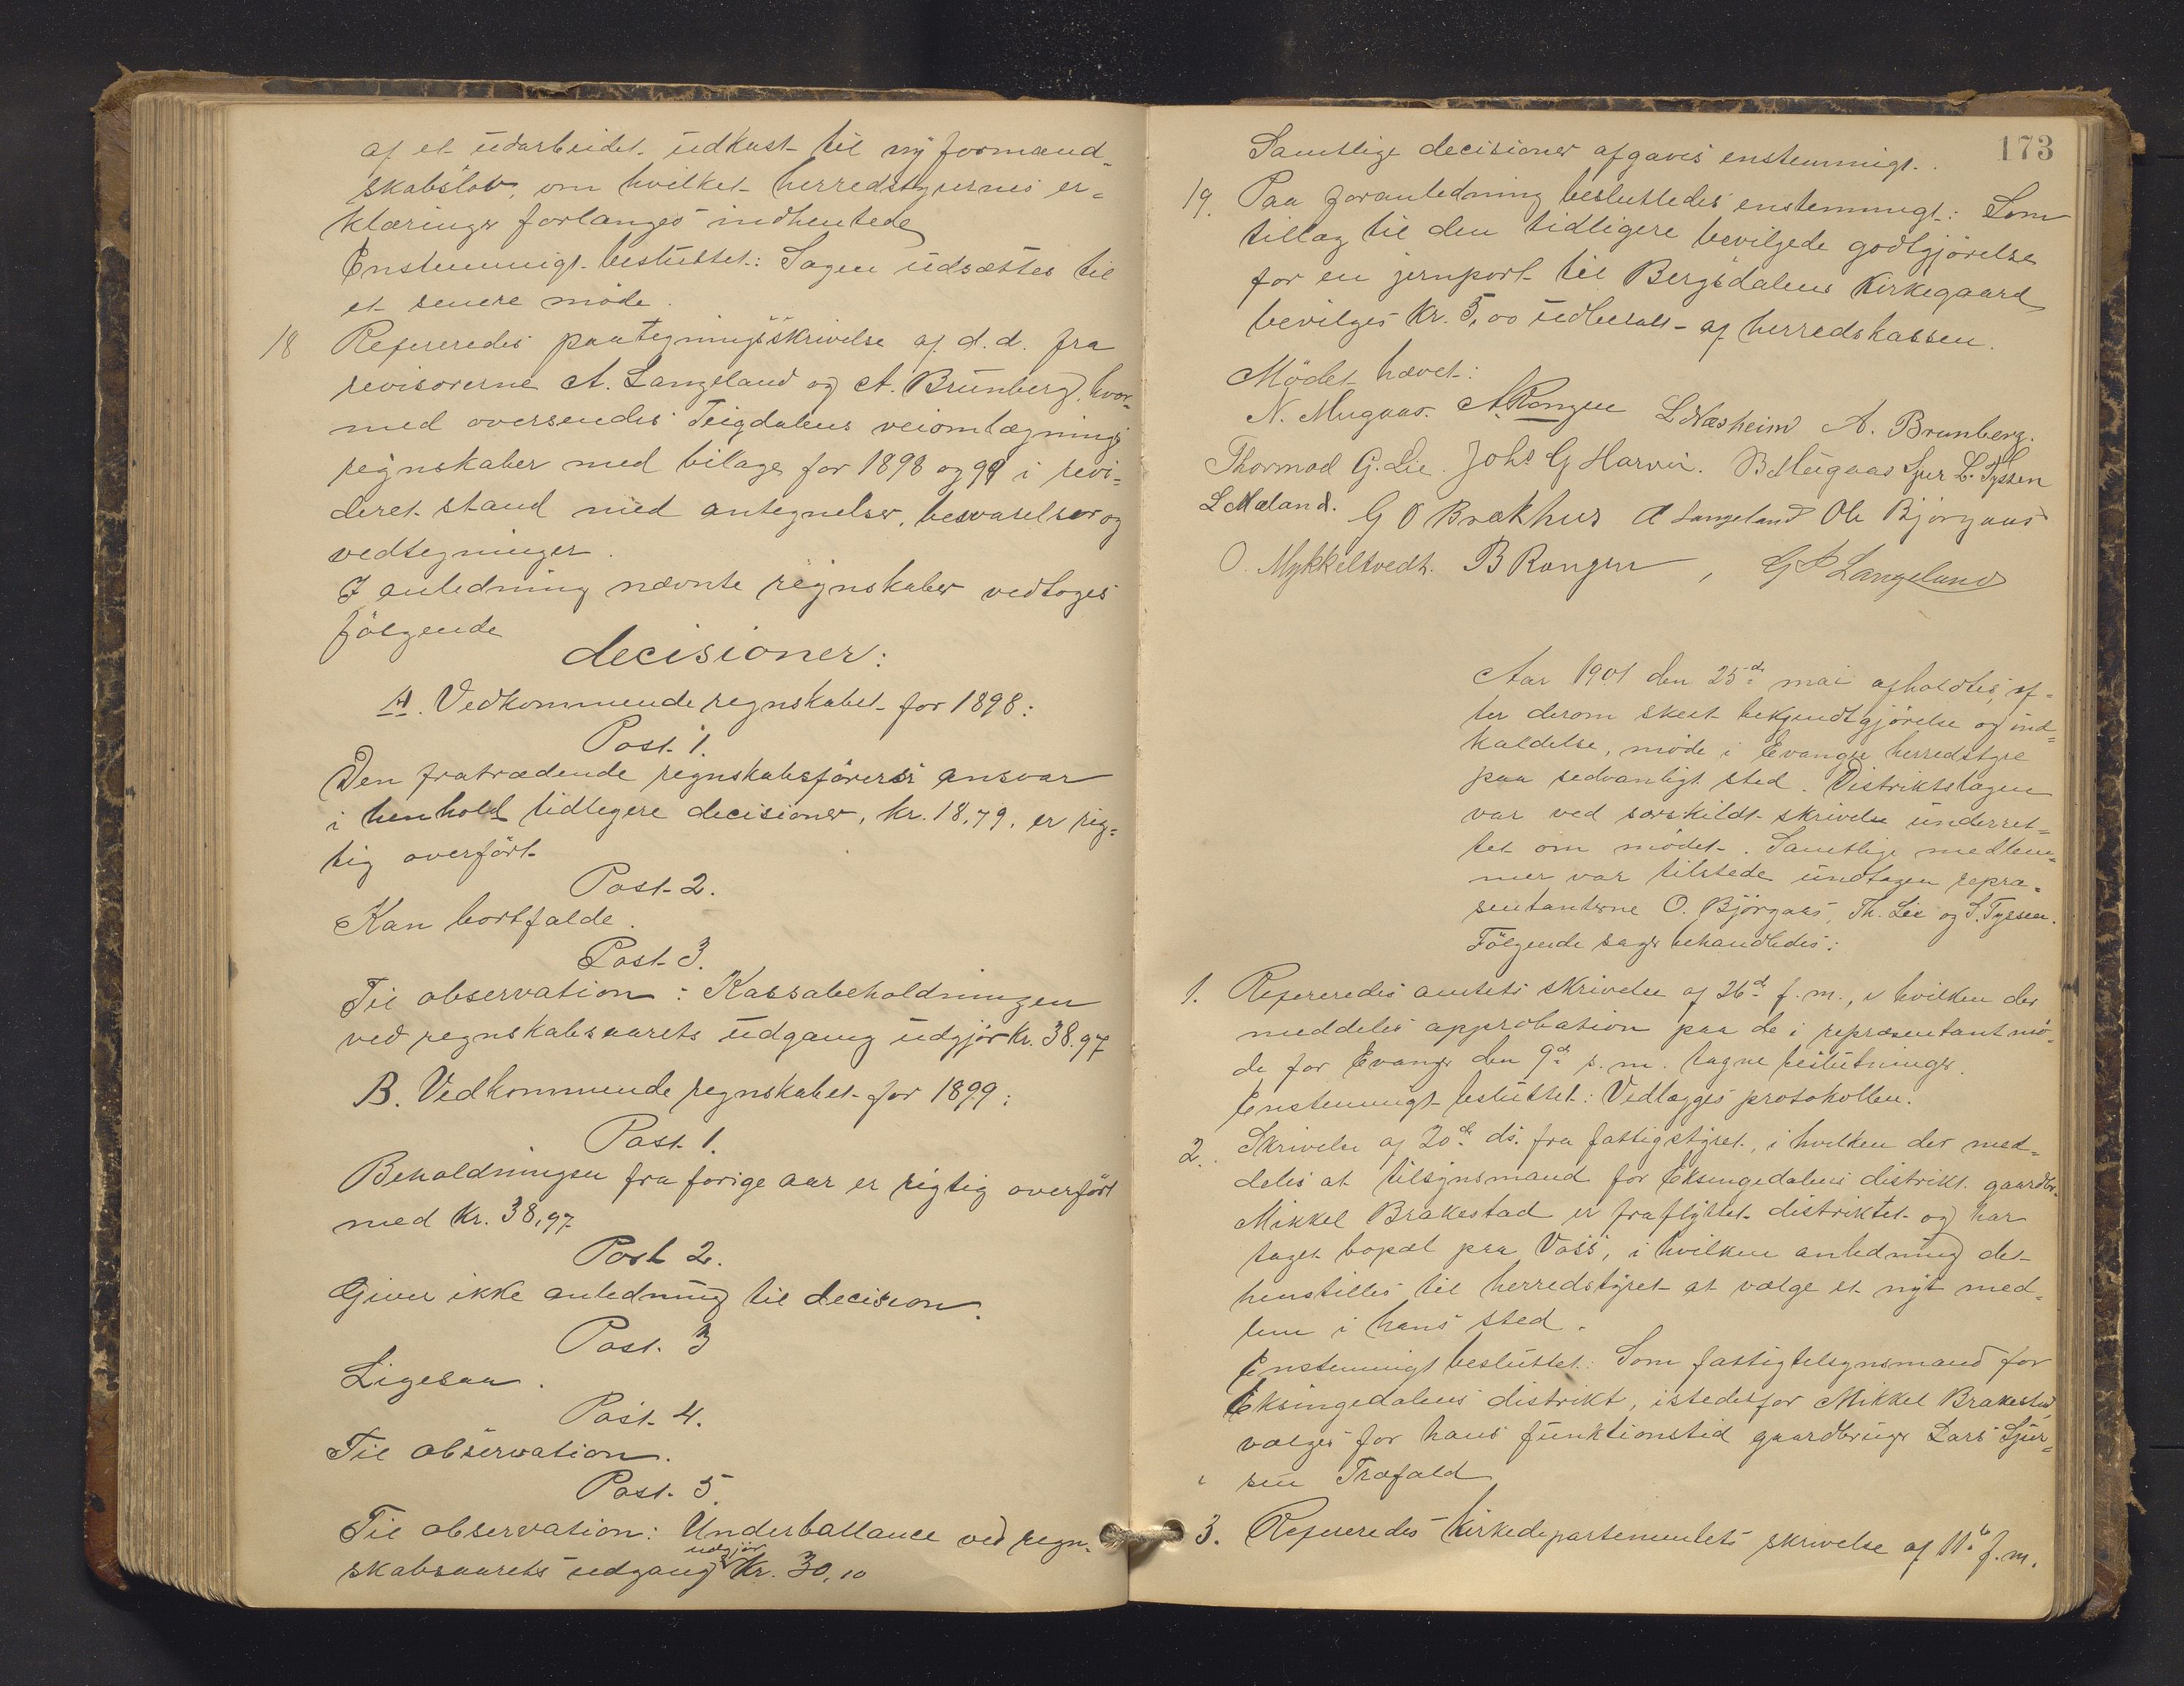 af et udarbeidet udkast til ny formand-
skabslov, om hvilket herredstyrernes er-
klæringer forlanges indhentede
Enstemmigt besluttet: Sagen udsættes til
et senere møde.
18 Refereredes paategningsskrivelse af d.d. fra
revisorerne A. Langeland og A. Brunberg, hvor-
med oversendes Teigdalens veiomlægnings
regnskaber med bilage for 1898 og 99 i revi-
deret stand med antegnelser, besvarelser og
vedtegninger.
I anledning nævnte regnskaber vedtoges
følgende
decisioner:
A. Vedkommende regnskabet for 1898:
Post 1.
Den fratrædende regnskabsførers ansvar
i henhold tidligere decisioner, kr. 18,79, er rig-
tig overført
Post 2.
Kan bortfalde.
Post 3.
Til observation: Kassabeholdningen
ved regnskabsaarets udgang udgjør kr. 38.97
B. Vedkommende regnskabet for 1899:
Post 1.
Beholdningen fra forige aar er rigtig overført
med kr. 38,97
Post 2.
Giver ikke anledning til decision.
Post 3
Ligesaa.
Post 4.
Til observation.
Post 5.
Til observation: Underballance ved regn-
skabsaarets udgang udgjør kr. 30,10
173
Samtlige decisioner afgaves enstemmigt.
19. Paa foranledning besluttedes enstemmigt: Som
tillæg til den tidligere bevilgede godtgjørelse
for en jernport til Bergsdalens Kirkegaard
bevilges kr. 5,00 udbetalt af herredskassen.
Mødet hævet:
N. Mugaas. A Rongen L Næsheim A. Brunberg.
Thormod G. Lie. Johs G Horvei. B Mugaas Sjur L. Tyssen
L Mæland. G O Brækhus A Langeland Ole Bjørgaas
O. Mykkeltvedt. B Rongen, G A Langeland
Aar 1901 den 25de mai afholdtes, ef-
ter derom skeet bekjendtgjørelse og ind-
kaldelse, møde i Evanger herredstyre
paa sedvanligt sted. Distriktslægen
var ved særskildt skrivelse underret-
tet om mødet. Samtlige medlem-
mer var tilstede undtagen repræ-
sentanterne O. Bjørgaas, Th. Lie og S. Tyssen.
Følgende sager behandledes:
1. Refereredes amtets skrivelse af 26de f.m., i hvilken der
meddeles approbation paa de i repræsentantmø-
de for Evanger den 9de s.m. tagne beslutninger.
Enstemmigt besluttet: Vedlægges protokollen.
2. Skrivelse af 20de ds. fra fattigstyret, i hvilken der med-
deles at tilsynsmand for Eksingedalens distrikt gaardbr.
Mikkel Brakestad er fraflyttet distriktet og har
taget bopæl paa Voss, i hvilken anledning det
henstilles til herredstyret at vælge et nyt med-
lem i hans sted.
Enstemmigt besluttet: Som fattigtilsynsmand for
Eksingedalens distrikt, istedetfor Mikkel Brakestad
vælges for hans funktionstid gaardbruger Lars Sjur-
sen Træfald
3. Refereredes Kirkedepartementets skrivelse af 11te f.m.